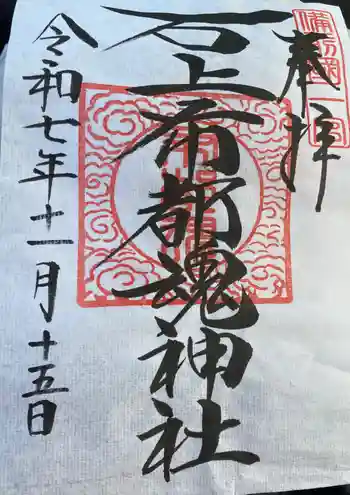 奉拝
備前國一宮
石上布都魂神社
令和七年十一月十五日